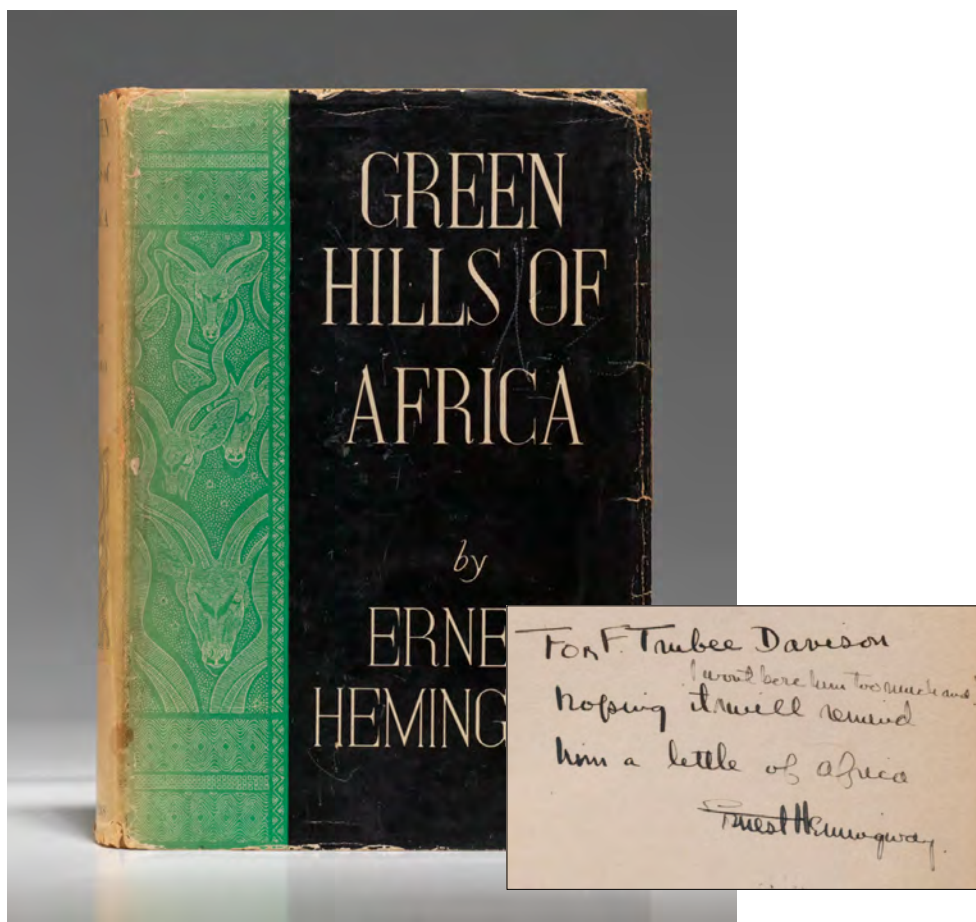 GREEN
HILLS OF
AFRICA
by
ERNE
HEMING
For F. Trubee Davison
I wont bore him too much and
hoping it will remind
him a little of africa
Ernest Hemingway.